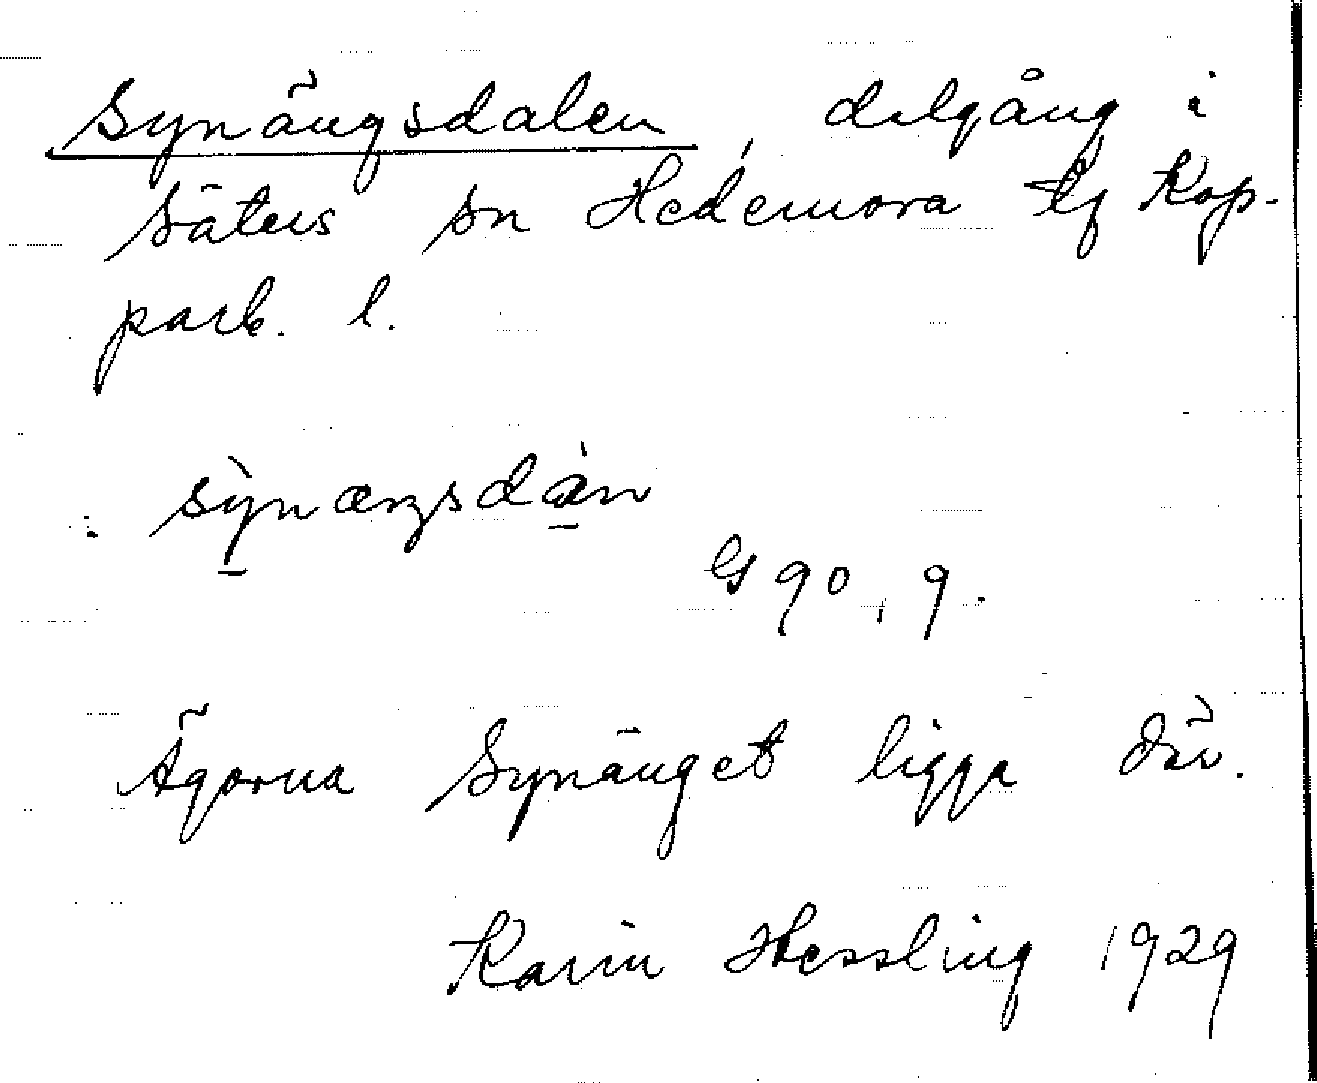 Synängsdalen, dalgång i
Säters sn Hedemora tg Kop-
parb. l.
sỳnæŋsdàn
G 90, 9.
Ägorna Synänget ligga där.
Karin Hessling 1929